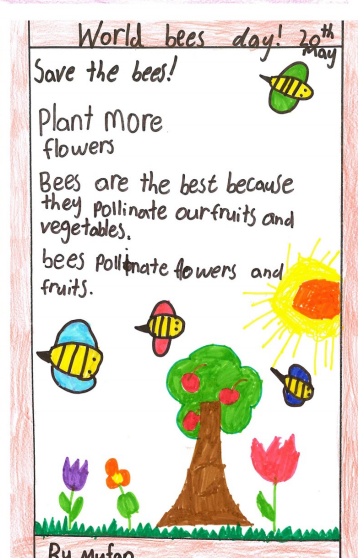 World bees day! 20th
May
Save the bees!
Plant more
flowers
Bees are the best because
they pollinate our fruits and
vegetables.
bees pollinate flowers and
fruits.
By